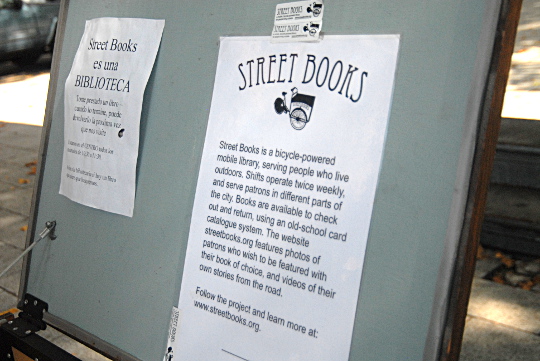 Street Books
es una
BIBLIOTECA
Tome prestado un libro
cuando lo termine, puede
devolverlo la próxima vez
que nos visite
STREET BOOKS
STREET BOOKS
STREET BOOKS
Street Books is a bicycle-powered
mobile library, serving people who live
outdoors. Shifts operate twice weekly,
and serve patrons in different parts of
the city. Books are available to check
out and return, using an old-school card
catalogue system. The website
streetbooks.org features photos of
patrons who wish to be featured with
their book of choice, and videos of their
own stories from the road.
Follow the project and learn more at:
www.streetbooks.org.